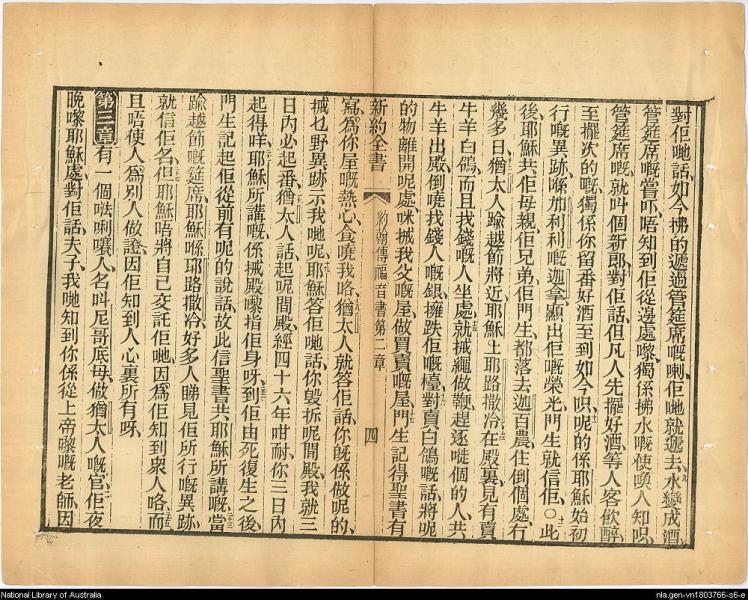 對佢哋話、如今拂的遞過管筵席嘅喇、佢哋就遞去、水變成酒、
管筵席嘅嘗吓、唔知到佢從邊處嚟、獨係拂水嘅使喚人知啫、
管筵席嘅就叫個新郎、對佢話、但凡人先擺好酒、等人客飲醉、
至擺次的嘅、獨係你留番好酒、至到如今呮、呢的係耶穌始初
行嘅異跡、喺加利利嘅迦拿、顯出佢嘅榮光、門生就信佢、○此
後、耶穌共佢母親、佢兄弟、佢門生、都落去迦百農、住倒個處冇
幾多日、猶太人踰越節將近、耶穌上耶路撒冷、在殿裏見有賣
牛羊白鴿、而且找錢嘅人坐處、就搣繩做鞭、趕逐嗰個的人、共
牛羊出殿、倒嘵找錢人嘅銀、擁跌佢嘅檯、對賣白鴿嘅話、將呢
的物離開呢處、咪搣我父嘅屋、做買賣嘅屋、門生記得聖書有
寫、為你屋嘅熱心、食嘵我咯、猶太人就答佢話、你既係做呢的、
搣乜野異跡示我哋呢、耶穌答佢哋話、你毀拆呢間殿、我就三
日內必起番、猶太人話、起呢間殿、經四十六年咁耐、你三日內
起得咩、耶穌所講嘅、係搣殿嚟指佢身呀、到佢由死復生之後、
門生記起佢從前有呢的說話、故此信聖書、共耶穌所講嘅、當
踰越節嘅筵席、耶穌喺耶路撒冷、好多人睇見佢所行嘅異跡、
就信佢名、但耶穌唔將自己交託佢哋、因為佢知到眾人咯、而
且唔使人為別人做證、因佢知到人心裏所有呀、
第三章 有一個𠵽唎㘓人、名叫尼哥底母、做猶太人嘅官、佢夜
晚嚟耶穌處、對佢話、夫子、我哋知到你係從上帝嚟嘅老師、因
新約全書
約翰傳福音書第二章
四
National Library of Australia
nla.gen-vn1803766-s6-e